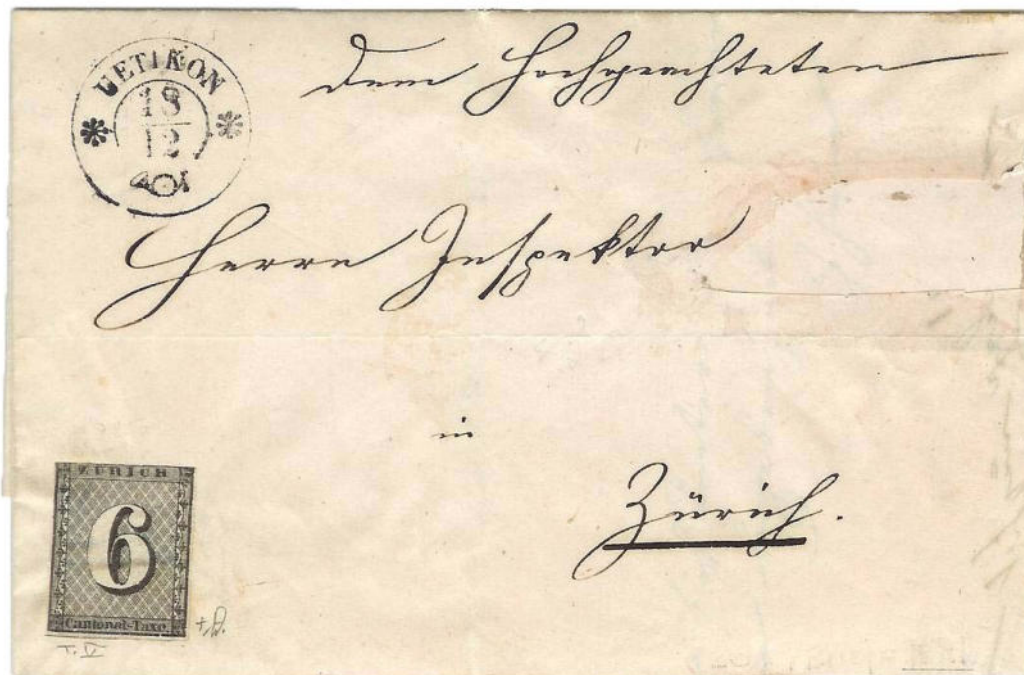 UETIKON
18
12
Dem Hochgeachteten
Herrn Inspektor
in
Zürich.
ZÜRICH
6
Cantonal-Taxe.
T. V